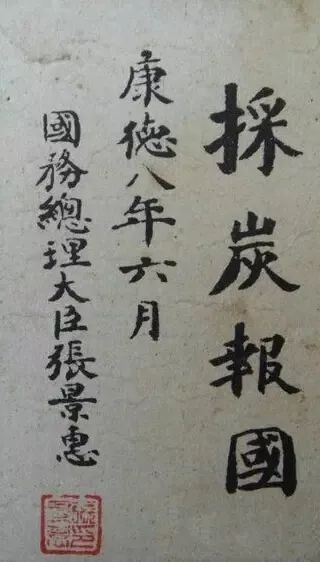 採炭報國
康德八年六月
國務總理大臣張景惠